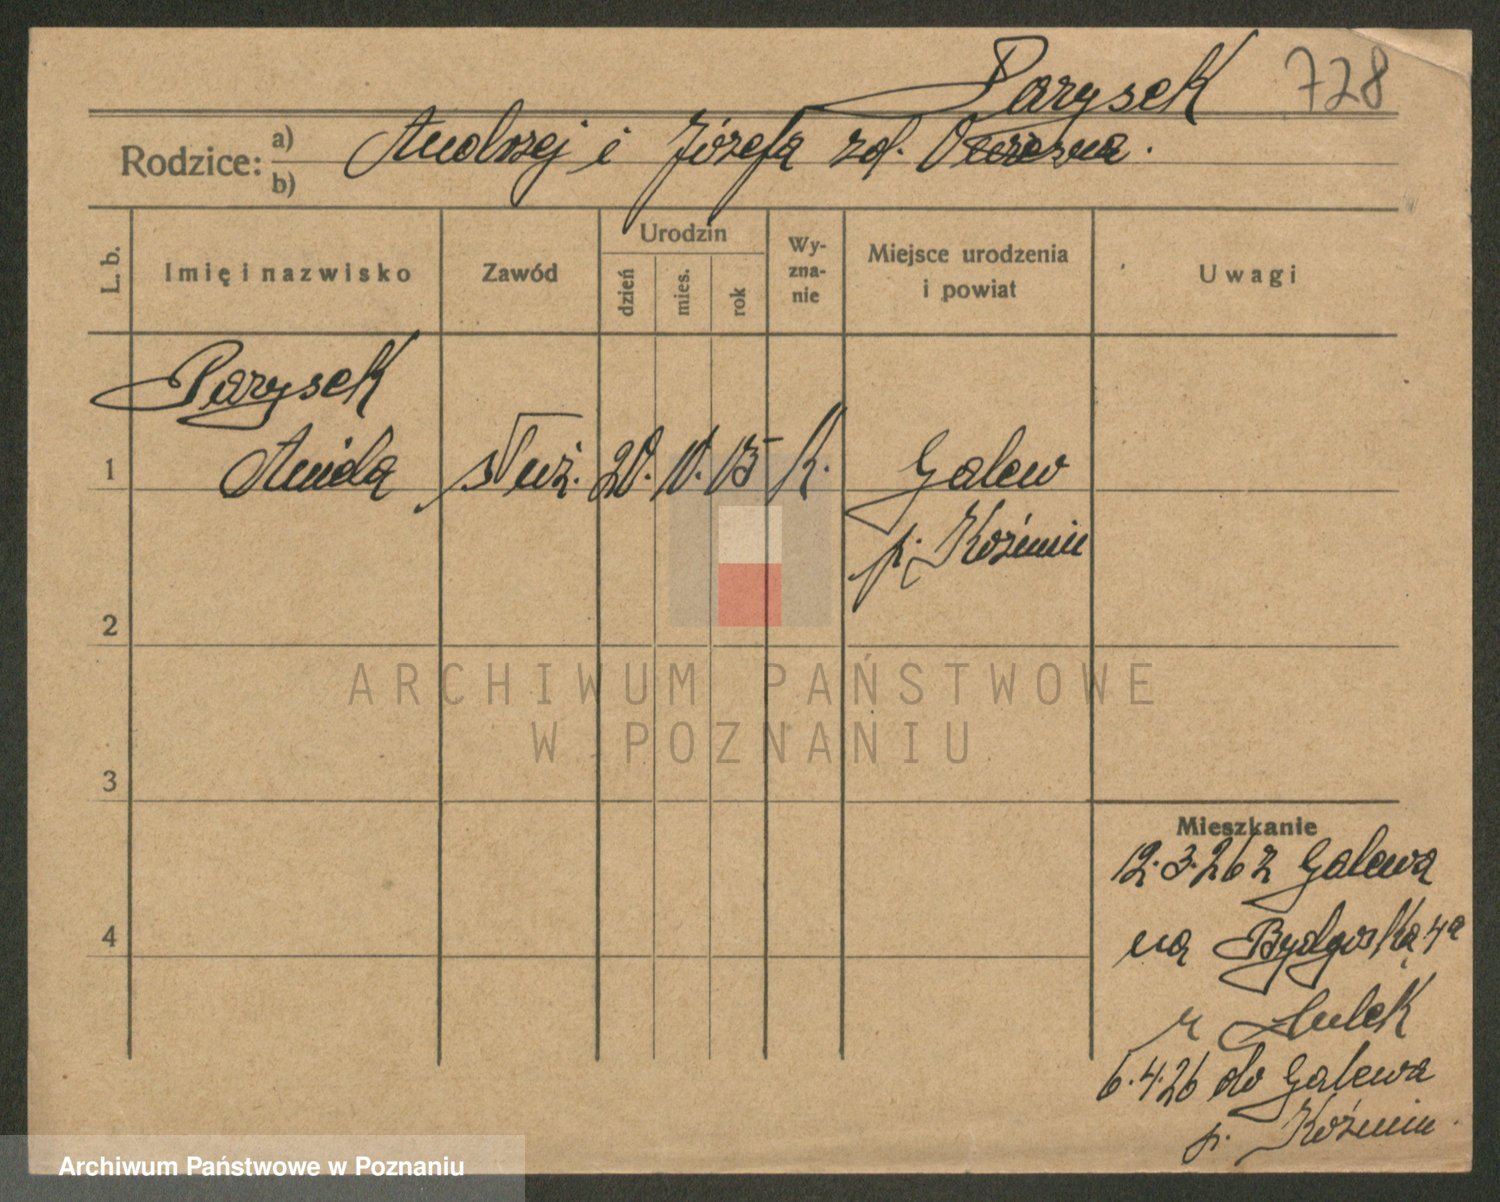 Parysek 728
Rodzice: a) b) Andrzej i Józefa zd.
L. b. Imię i nazwisko Zawód Urodzin dzień mies. rok Wyzna-nie Miejsce urodzenia i powiat Uwagi
Parysek
1 Anida służ. 20. 10. 05 k. Galew
p. Koźmin
2
ARCHIWUM PAŃSTWOWE
W POZNANIU
3
Mieszkanie
12.3.26 z Galewa
4
na Bydgoską 4a
6.4.26 do Galewa
p. Koźmin
Archiwum Państwowe w Poznaniu